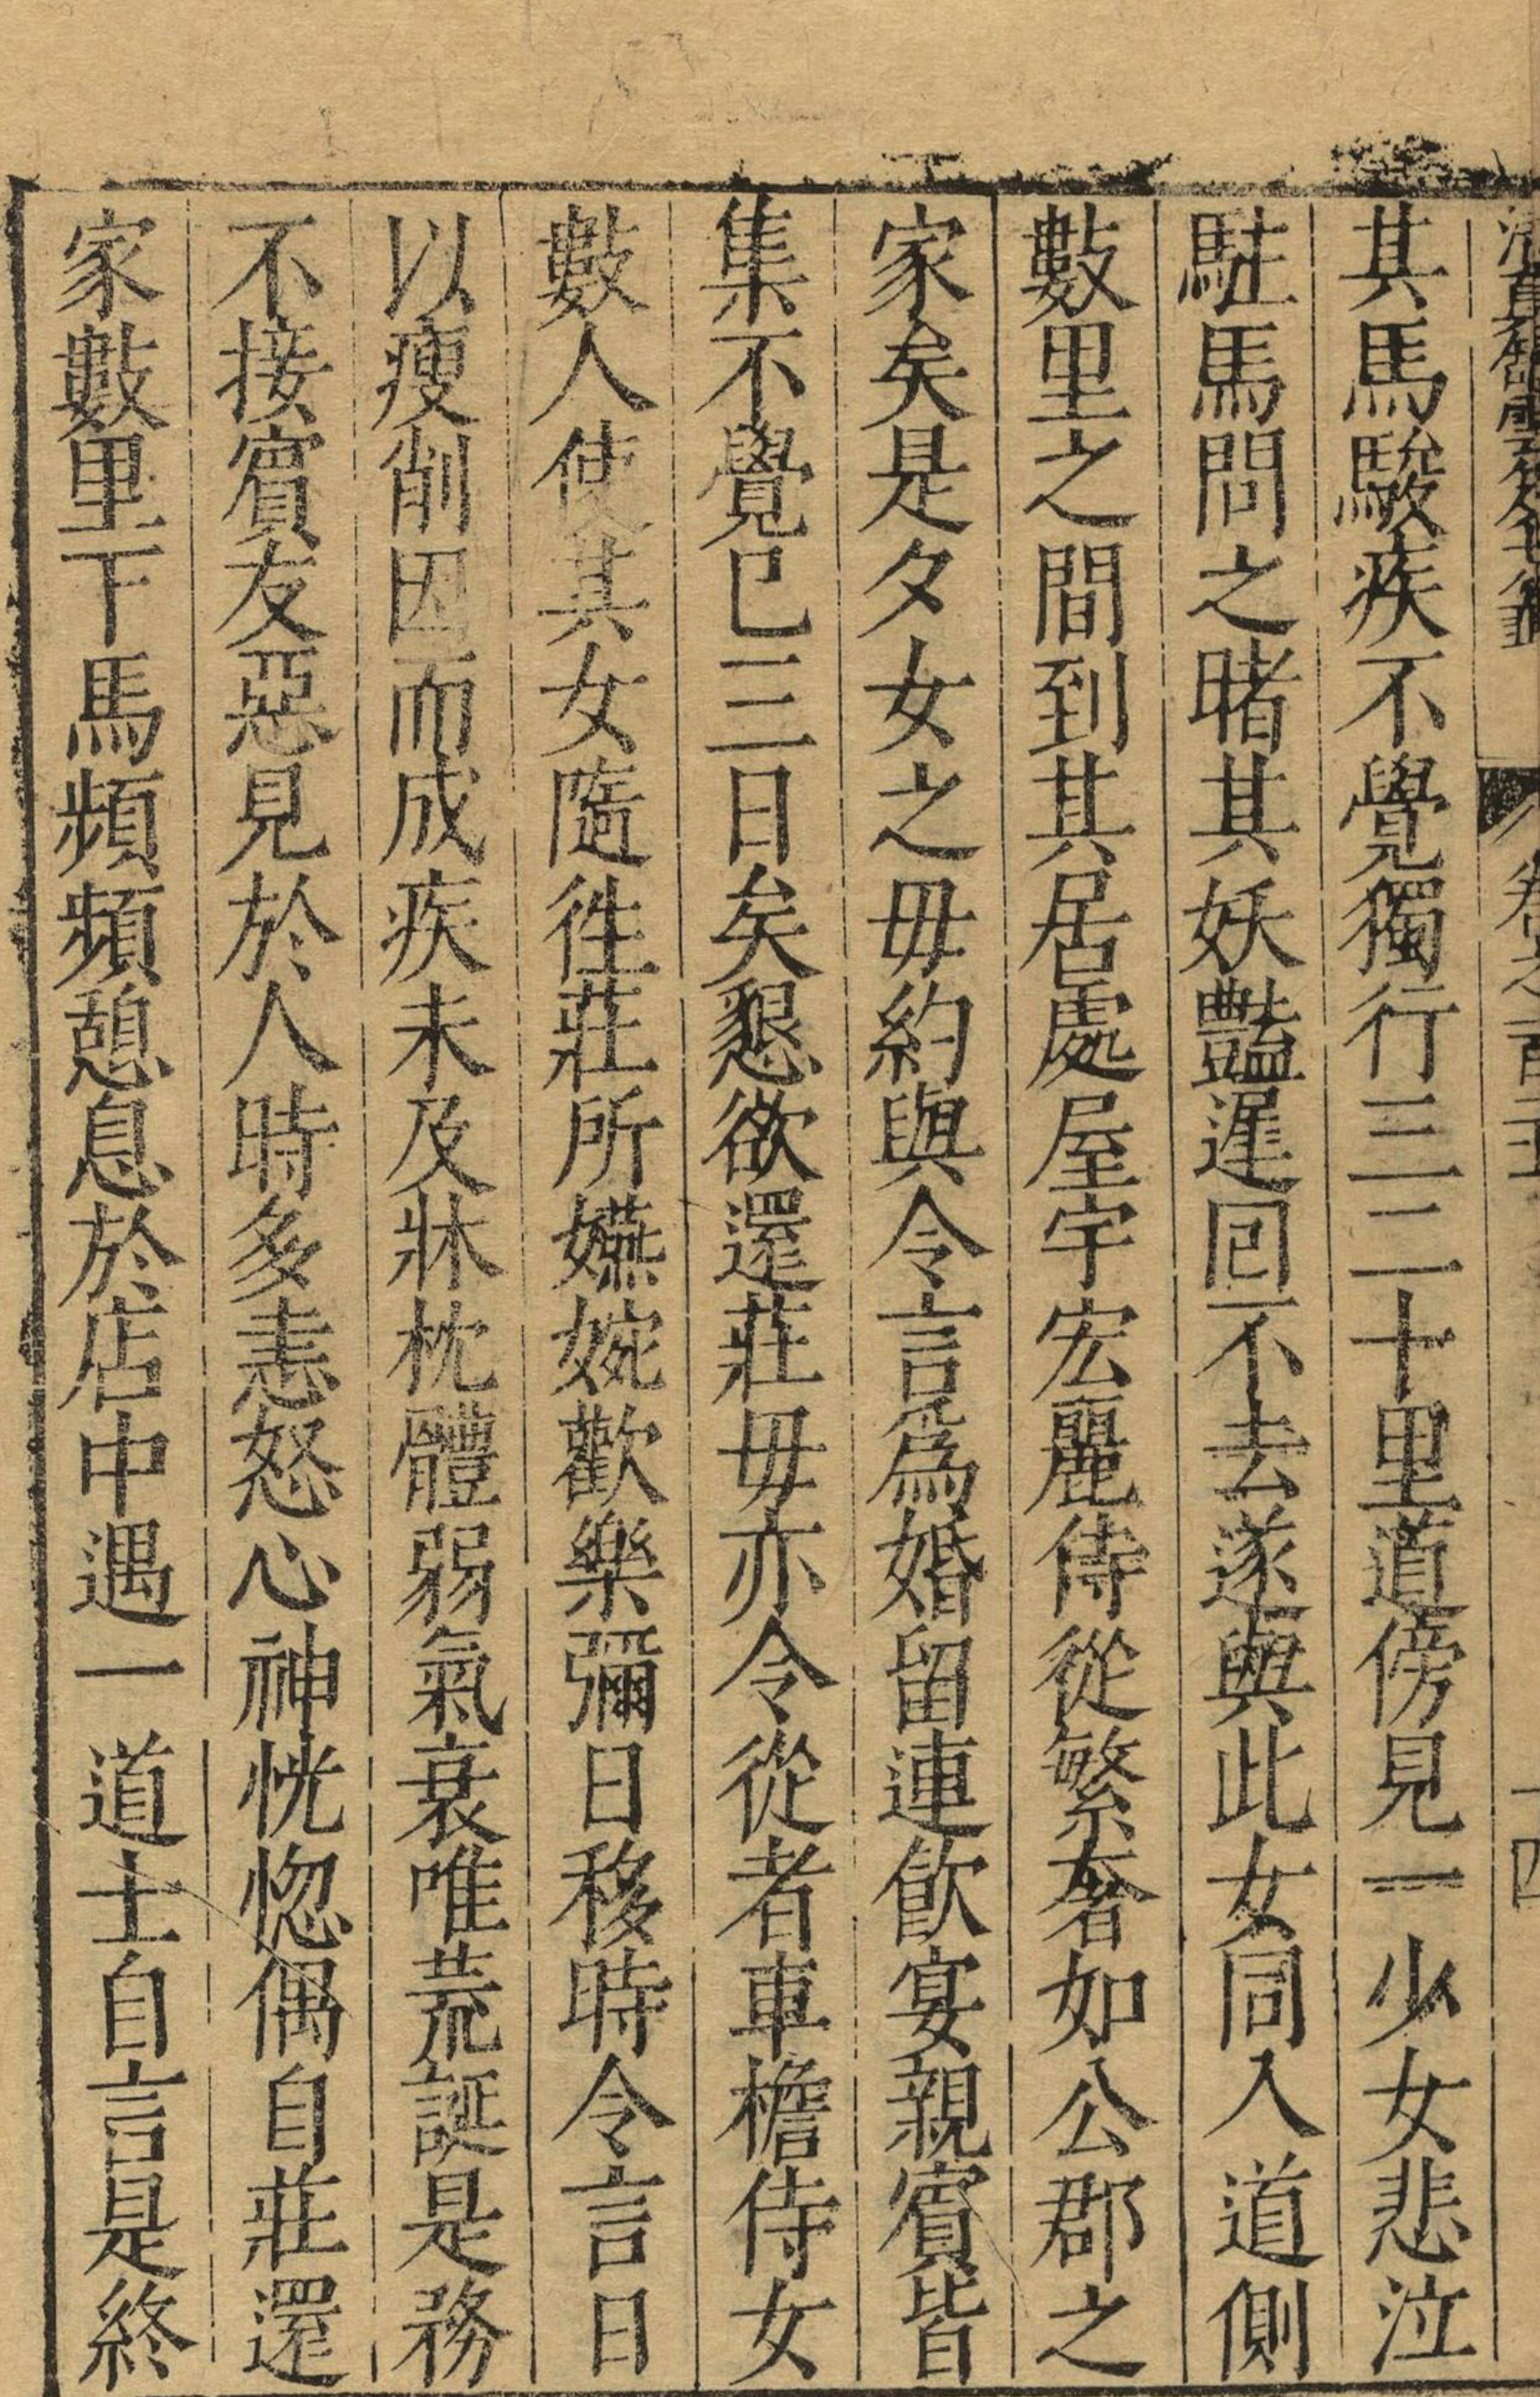 卷之百二十 十四
其馬駿疾不覺獨行三二十里道傍見一少女悲泣
駐馬問之睹其妖豔遲回不去遂與此女同入道側
數里之間到其居處屋宇宏麗侍從繁奢如公郡之
家矣是夕女之母約與令言爲婚留連飮宴親賓皆
集不覺巳三日矣懇欲還莊母亦令從者車檐侍女
數人使其女隨徃莊所嬿婉歡樂彌日移時令言日
以瘦削因而成疾未及牀枕體弱氣衰唯荒誕是務
不接賓友惡見於人時多恚怒心神恍惚偶自莊還
家數里下馬頻頻憩息於店中遇一道士自言是終